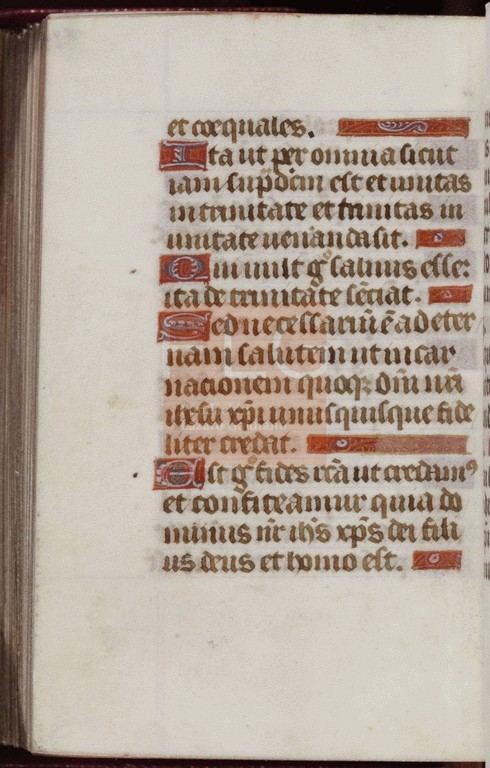 et coequales.
Ita ut per omnia sicut
iam sup̄dcm̄ est et unitas
in trinitate et trinitas in
unitate ueneranda sit.
Qui uult gº saluus esse:
ita de trinitate sēciat.
Sed necessariū ē ad eter
nam salutem ut incar
nacionem quoqꝫ dm̄ nr̄i
ihesu xp̄i unusquisque fide
liter credat.
Est gº fides rc̄a ut credamꝰ
et confiteamur quia do
minus nr̄ ih̄s xp̄s dei fili
us deus et homo est.